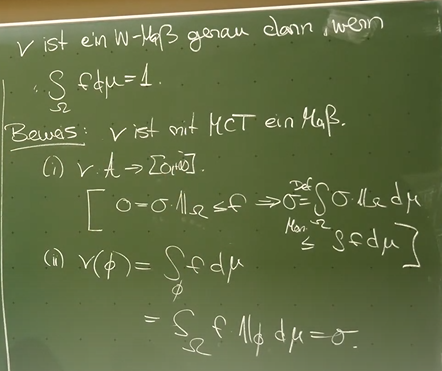 ν ist ein W-Maß genau dann, wenn
∫_Ω f dμ = 1.
Beweis: ν ist mit MCT ein Maß.
(i) ν: A → [0,+∞].
[ 0 = 0·𝟙_Ω ≤ f ⇒ 0 =^{Def} ∫_Ω 0·𝟙_Ω dμ
≤^{Mon.} ∫ f dμ ]
(ii) ν(∅) = ∫_∅ f dμ
= ∫_Ω f 𝟙_∅ dμ = 0.